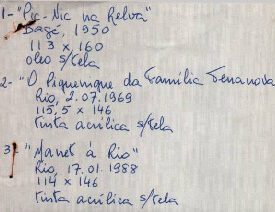 1- "Pic-Nic na Relva"
Bagé, 1950
113 x 160
oleo s/tela
2- "O Piquenique da Família Terranova
Rio, 2.07.1969
115,5 x 146
tinta acrílica s/tela
3) "Manet à Rio"
Rio, 17.01.1988
114 x 146
tinta acrílica s/tela